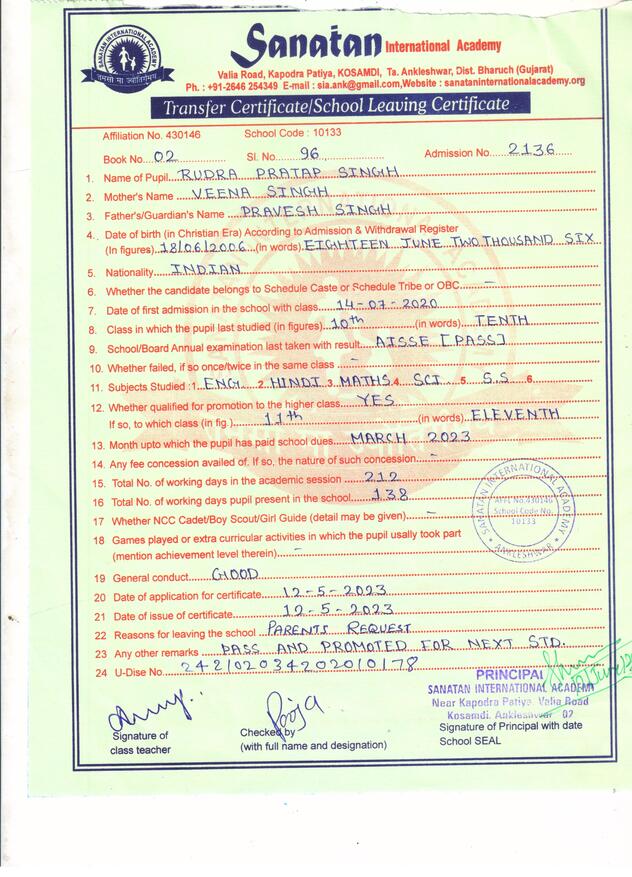 SANATAN INTERNATIONAL ACADEMY
तमसो मा ज्योतिर्गमय
Sanatan International Academy
Valia Road, Kapodra Patiya, KOSAMDI, Ta. Ankleshwar, Dist. Bharuch (Gujarat)
Ph. : +91-2646 254349 E-mail : sia.ank@gmail.com,Website : sanataninternationalacademy.org
Transfer Certificate/School Leaving Certificate
Affiliation No. 430146 School Code : 10133
Book No. 02 Sl. No. 96 Admission No. 2136
1. Name of Pupil RUDRA PRATAP SINGH
2. Mother's Name VEENA SINGH
3. Father's/Guardian's Name PRAVESH SINGH
4. Date of birth (in Christian Era) According to Admission & Withdrawal Register
(In figures) 18/06/2006 (in words) EIGHTEEN JUNE TWO THOUSAND SIX
5. Nationality INDIAN
6. Whether the candidate belongs to Schedule Caste or Schedule Tribe or OBC -
7. Date of first admission in the school with class 14-07-2020
8. Class in which the pupil last studied (in figures) 10th (in words) TENTH
9. School/Board Annual examination last taken with result AISSE [PASS]
10. Whether failed, if so once/twice in the same class -
11. Subjects Studied :1 ENG. 2 HINDI 3 MATHS 4 SCI 5 S.S 6.
12. Whether qualified for promotion to the higher class YES
If so, to which class (in fig.) 11th (in words) ELEVENTH
13. Month upto which the pupil has paid school dues MARCH 2023
14. Any fee concession availed of. If so, the nature of such concession -
15. Total No. of working days in the academic session 212
16. Total No. of working days pupil present in the school 138
17. Whether NCC Cadet/Boy Scout/Girl Guide (detail may be given) -
18. Games played or extra curricular activities in which the pupil usally took part
(mention achievement level therein) -
SANATAN INTERNATIONAL ACADEMY
AFFI. No.430146
School Code No.
10133
* ANKLESHWAR *
19 General conduct GOOD
20 Date of application for certificate 12-5-2023
21 Date of issue of certificate 12-5-2023
22 Reasons for leaving the school PARENTS REQUEST
23 Any other remarks PASS AND PROMOTED FOR NEXT STD.
24 U-Dise No. 24210203420201​0178
PRINCIPAL
SANATAN INTERNATIONAL ACADEMY
Near Kapodra Patiya, Valia Road
Kosamdi, Ankleshwar 02
Pooja
Signature of class teacher
Checked by
(with full name and designation)
Signature of Principal with date
School SEAL